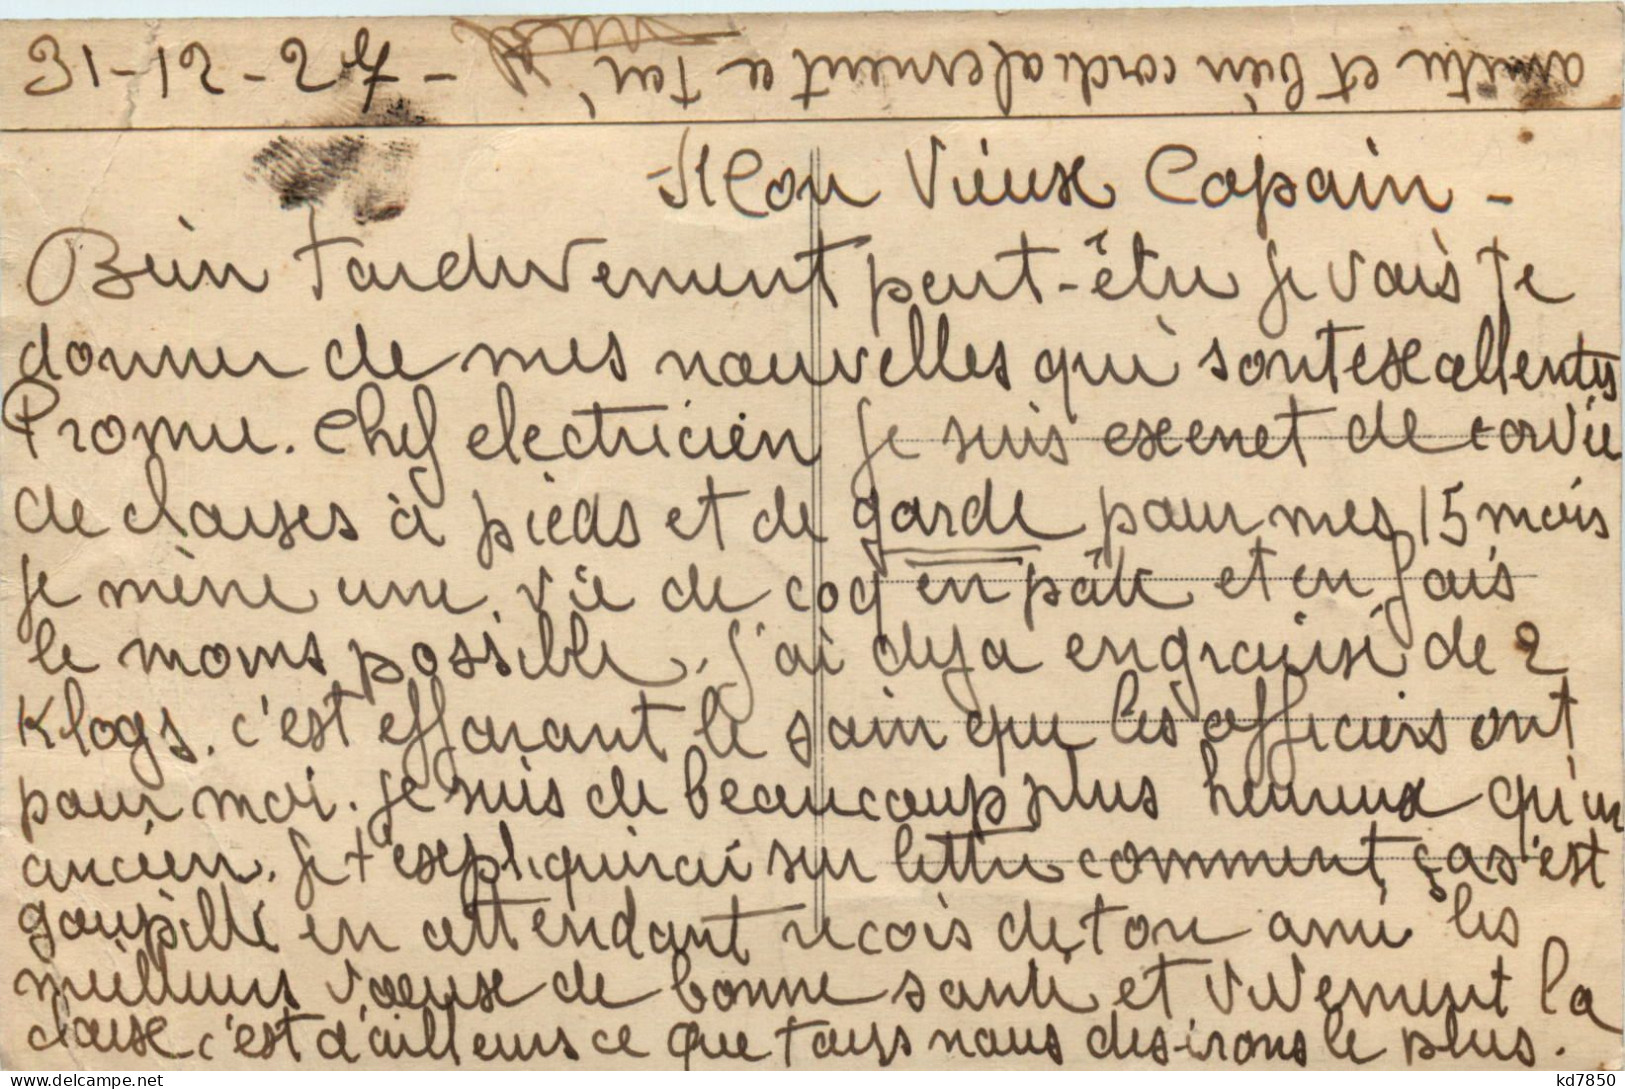 31-12-27 -
Mon Vieux Copain -
Bien tardivement peut-être je vais te
donner de mes nouvelles qui sont excellentes
Promu. Chef electricien je suis exenet de corvée
de chaises à pieds et de garde pour mes 15 mois
je mène une vie de coq en pâte et en fais
le moins possible. j'ai deja engraissé de 2
Klogs. c'est effarant le soin que les officiers ont
pour moi. je suis de beaucoup plus heureux qu'un
ancien. je t'expliquerai sur lettre comment ça s'est
goupillé en attendant recois de ton ami les
meilleurs voeux de bonne santé et vivement la
classe c'est d'ailleurs ce que tous nous desirons le plus.
amitié et bien cordialement a toi
kd7850